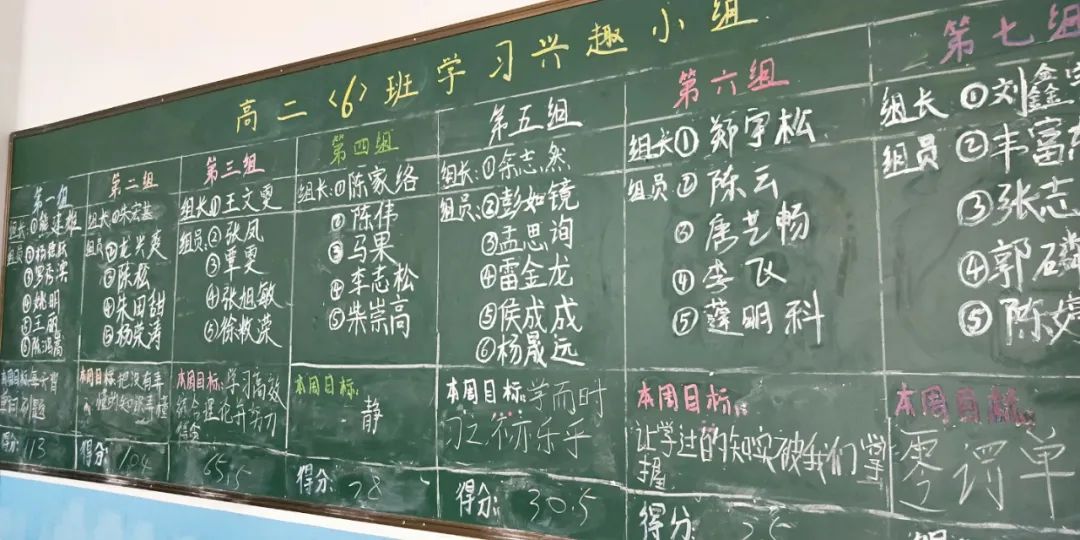 高二〈6〉班学习兴趣小组
第一组
组长①
组员②
③
④姚明
⑤王丽
⑥张鸿嵩
本周目标:每天背
得分:113
第二组
组长①朱宏基
组员②龙兴爽
③陈松
④朱田甜
⑤杨荣涛
本周目标:把没有弄
懂的知识弄懂
得分:104
第三组
组长①王文雯
组员:②张凤
③覃雯
④张旭敏
⑤徐敏荣
本周目标:学习高效
得分 65.5
第四组
组长:①陈家络
②陈伟
③马果
④李志松
⑤柴崇高
本周目标:
静
得分: 28
第五组
组长:①余志然
组员:②彭如镜
③孟思询
④雷金龙
⑤侯成成
⑥杨晟远
本周目标:学而时
习之 亦乐乎
得分: 30.5
第六组
组长①郑宇松
组员②陈云
③唐艺畅
④李飞
⑤蓬明科
本周目标:
让学过的知识被我们掌
握
得分:
第七组
组长①刘鑫
组员②丰富
③张志
④郭磷
⑤陈婷
本周目标:
零罚单